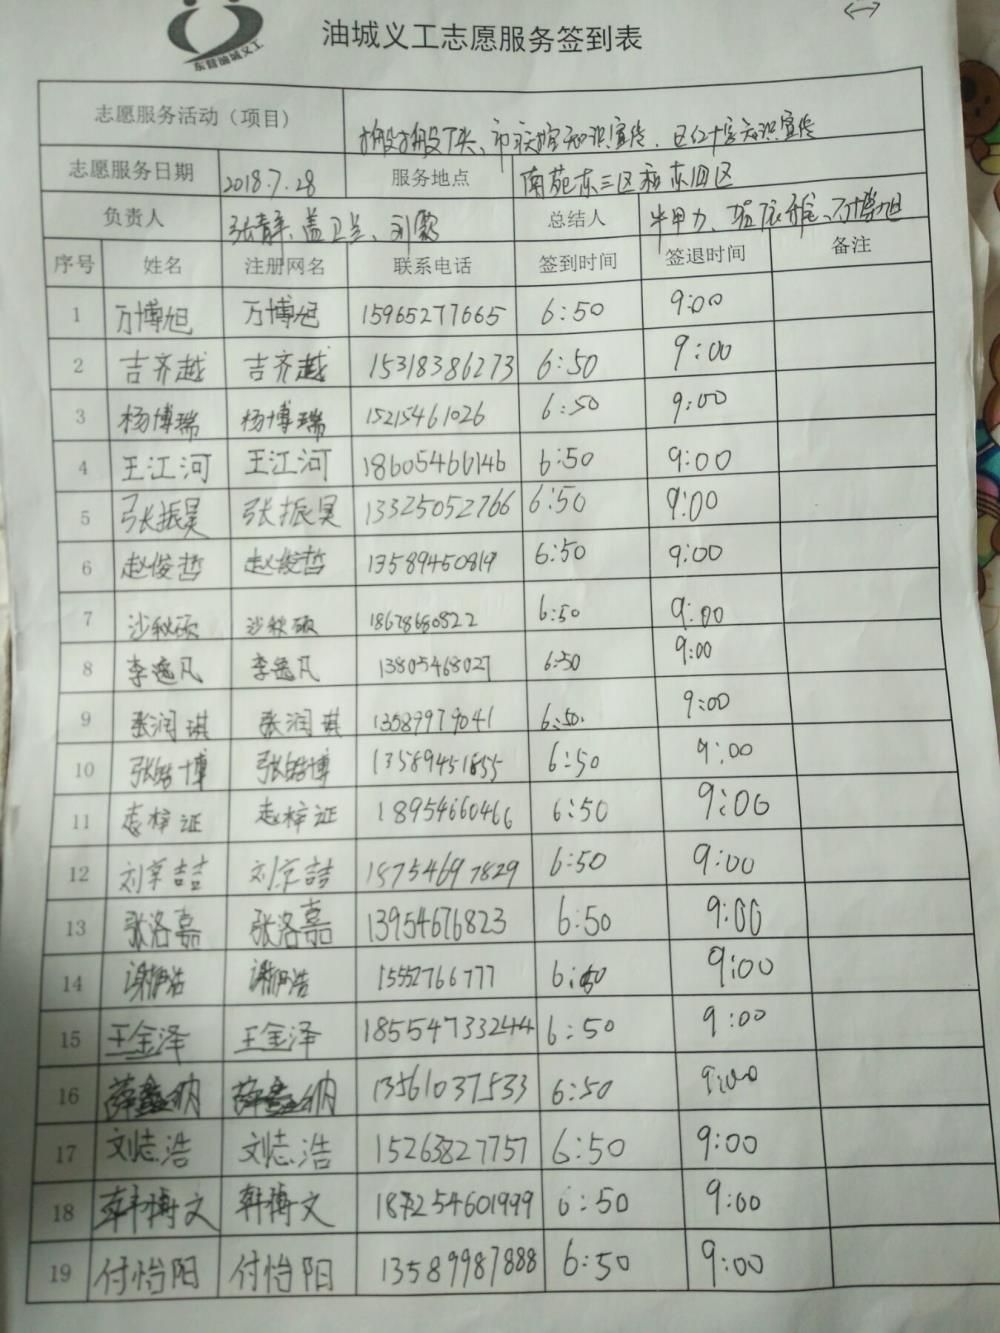 东营油城义工
油城义工志愿服务签到表
志愿服务活动（项目） 区红十字知识宣传
志愿服务日期 2018.7.28 服务地点 南苑东三区和东四区
负责人 张青 盖卫兰、刘霞 总结人 万博旭
序号 姓名 注册网名 联系电话 签到时间 签退时间 备注
1 万博旭 万博旭 15965277665 6:50 9:00
2 吉齐越 吉齐越 15318386273 6:50 9:00
3 杨博瑞 杨博瑞 15215461026 6:50 9:00
4 王江河 王江河 18605466146 6:50 9:00
5 张振昊 张振昊 13325052766 6:50 9:00
6 赵俊哲 赵俊哲 13589450819 6:50 9:00
7 沙秋硕 沙秋硕 18678680822 6:50 9:00
8 李逸凡 李逸凡 13805468027 6:50 9:00
9 张润琪 张润琪 13589979041 6:50. 9:00
10 张皓博 张皓博 13589451855 6:50 9:00
11 梓证 梓证 18954660466 6:50 9:00
12 刘京喆 刘京喆 6:50 9:00
13 张洛嘉 张洛嘉 13954676823 6:50 9:00
14 浩 浩 15552766777 6:50 9:00
15 王金泽 王金泽 18554733244 6:50 9:00
16 薛鑫纳 薛鑫纳 13561037533 6:50 9:00
17 刘志浩 刘志浩 15263827757 6:50 9:00
18 韩博文 韩博文 6:50 9:00
19 付怡阳 付怡阳 13589987888 6:50 9:00